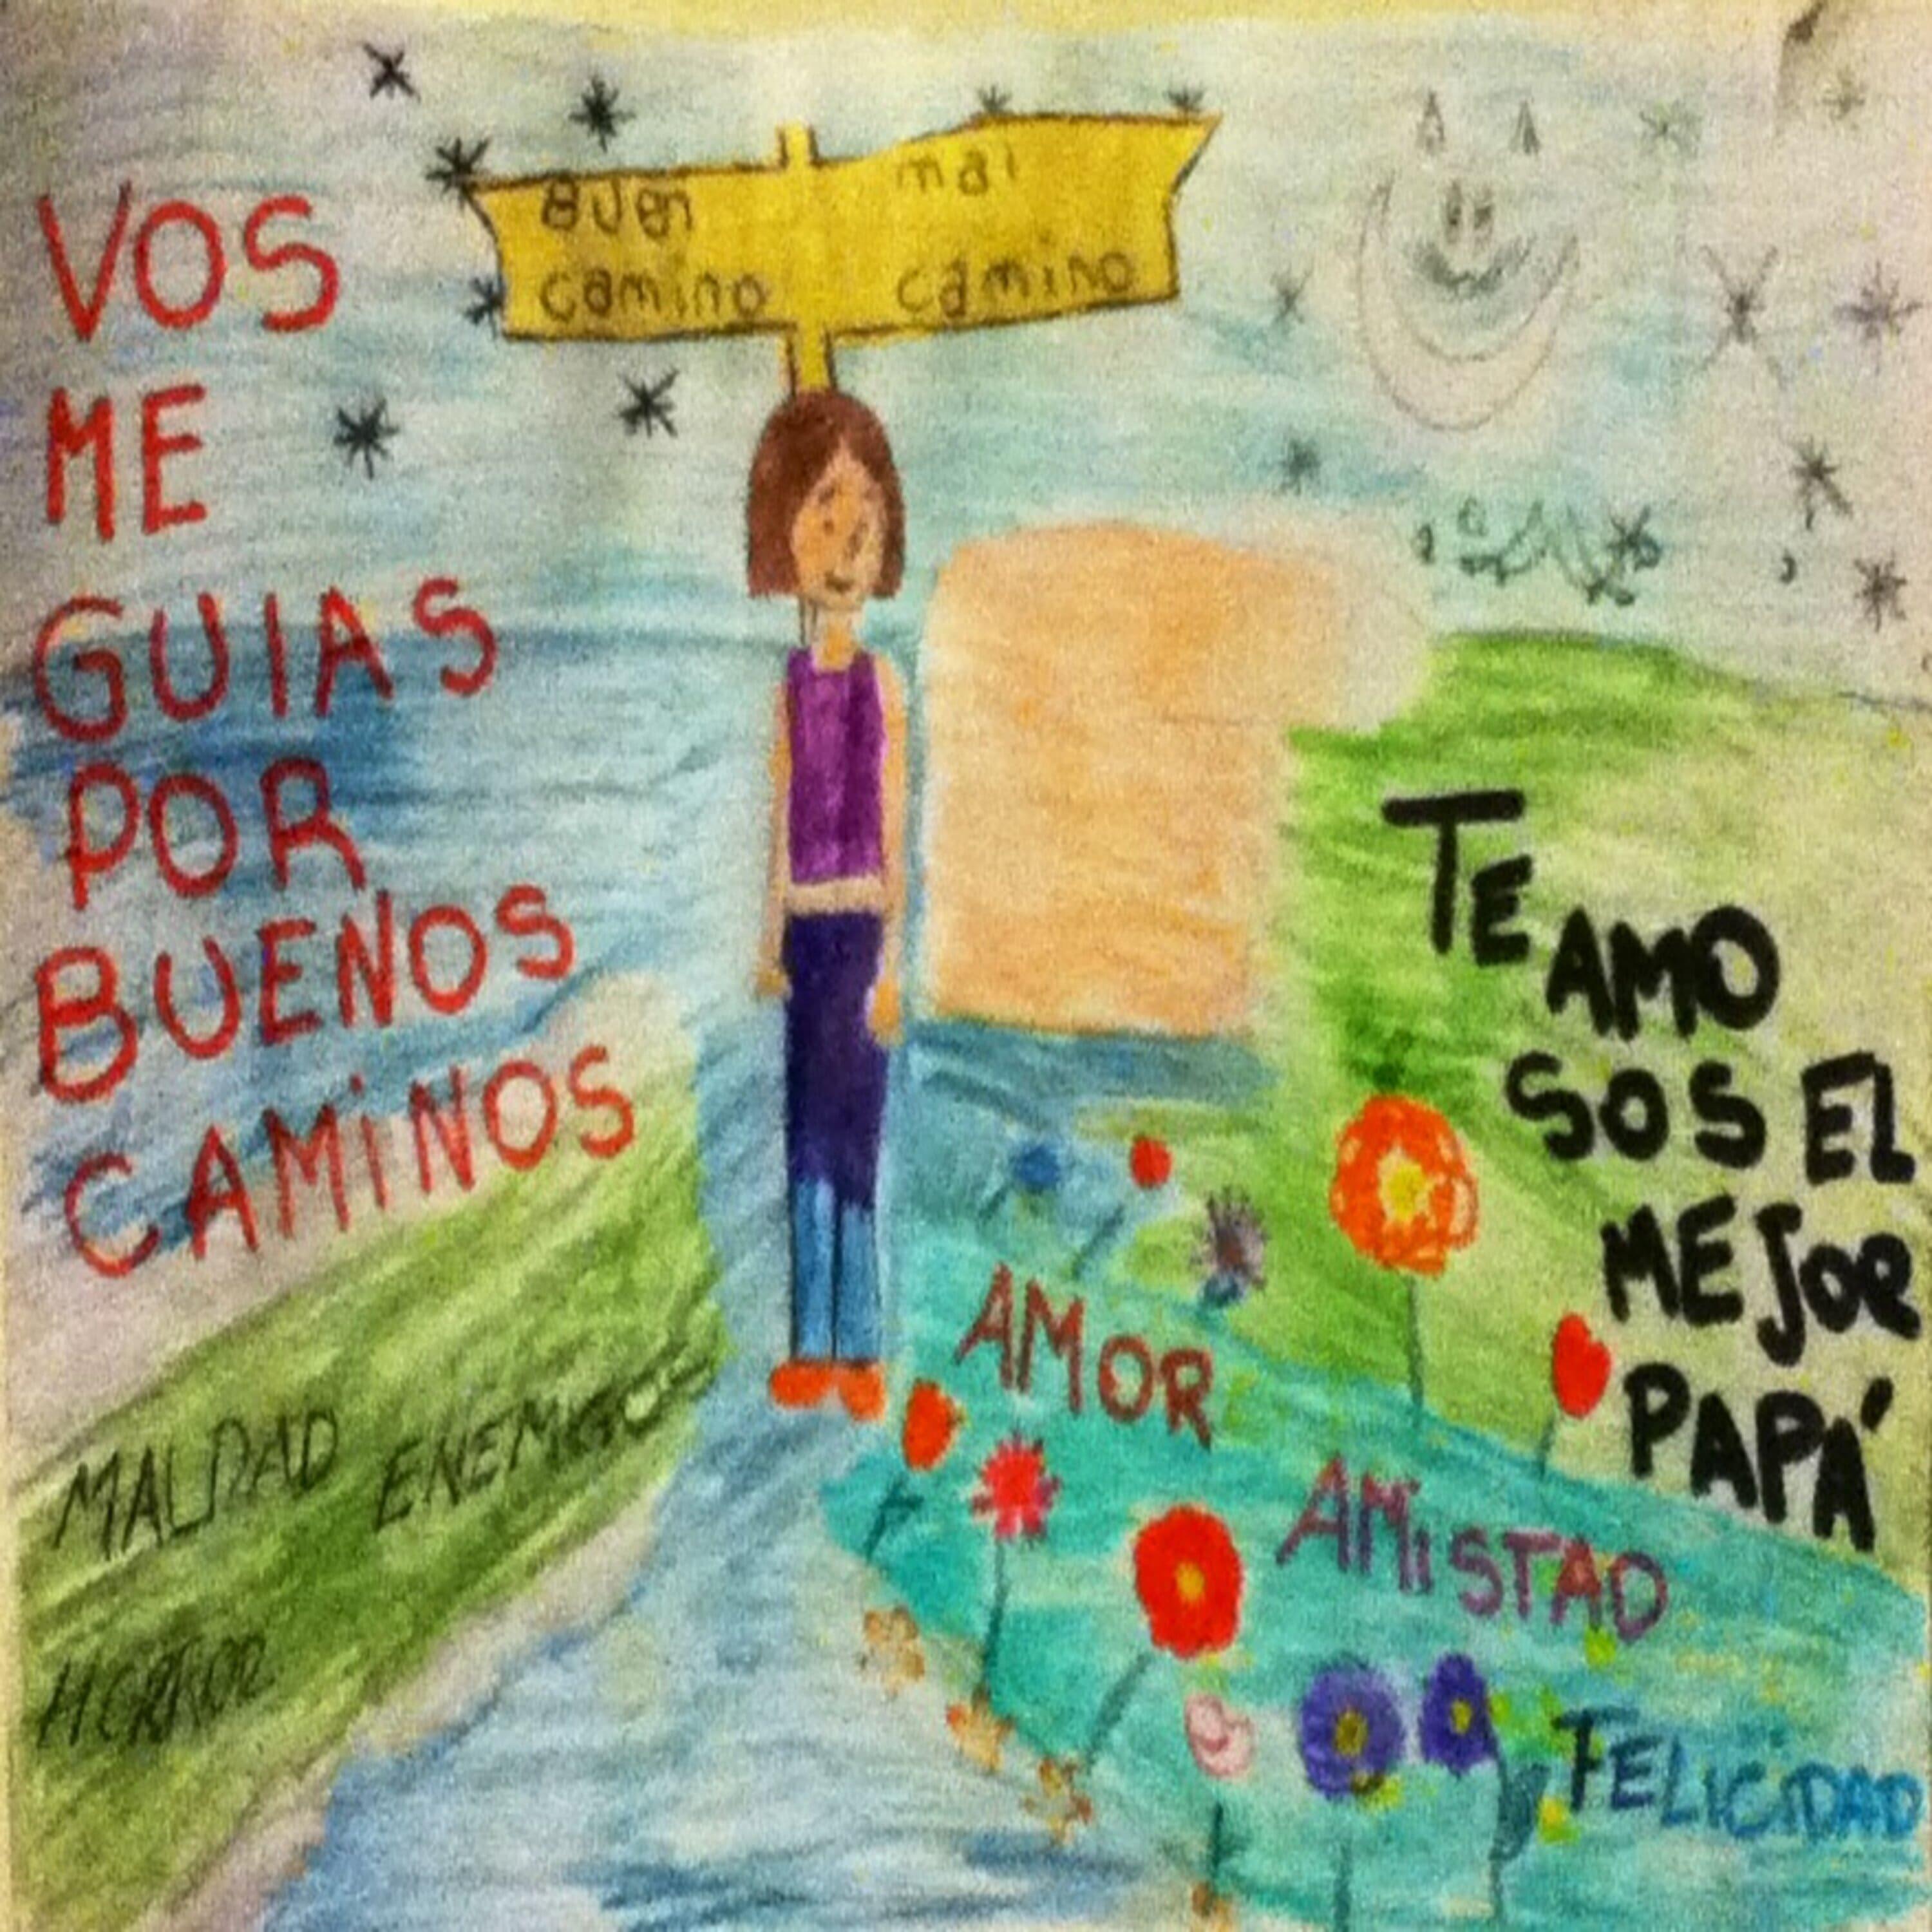 VOS
ME
GUIAS
POR
BUENOS
CAMINOS
Buen
camino
mal
camino
TE AMO
SOS EL
MEJOR
PAPÁ
AMOR
AMISTAD
FELICIDAD
MALDAD